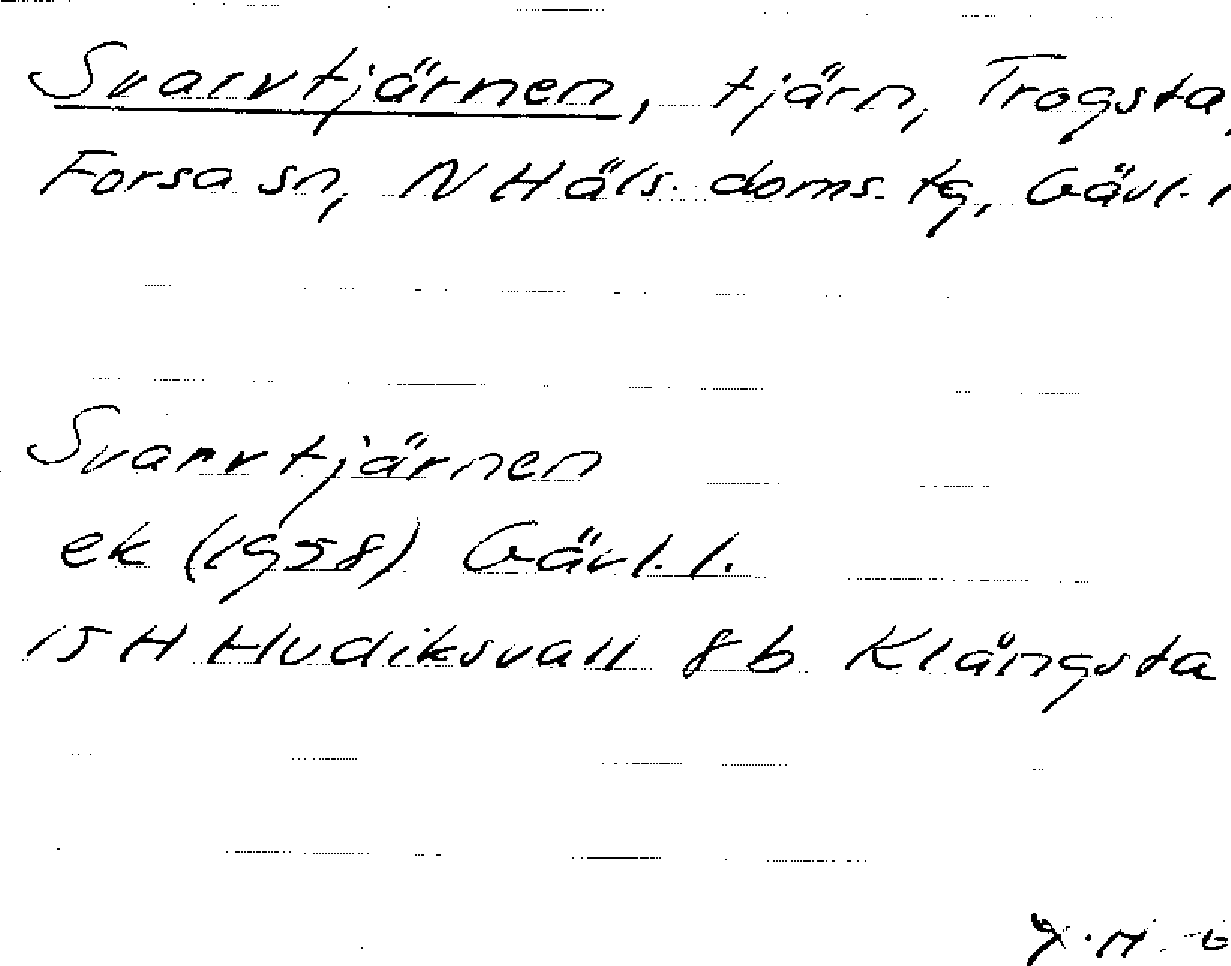 Svarvtjärnen, tjärn, Trogsta,
Forsa sn, N Häls. doms. tg, Gävl. l
Svarvtjärnen
ek (1958) Gävl. l.
15 H Hudiksvall 8 b Klångsta